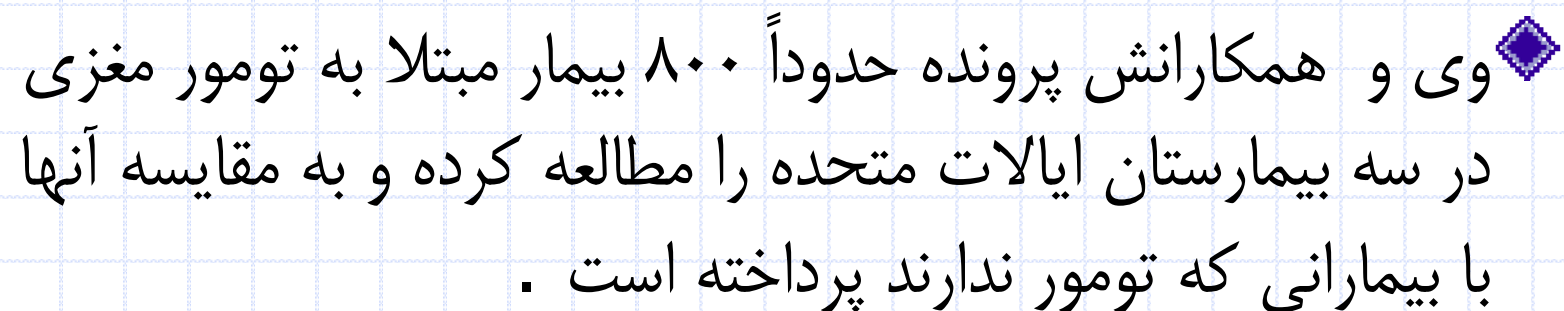 وی و همکارانش پرونده حدوداً ۸۰۰ بیمار مبتلا به تومور مغزی
در سه بیمارستان ایالات متحده را مطالعه کرده و به مقایسه آنها
با بیمارانی که تومور ندارند پرداخته است .